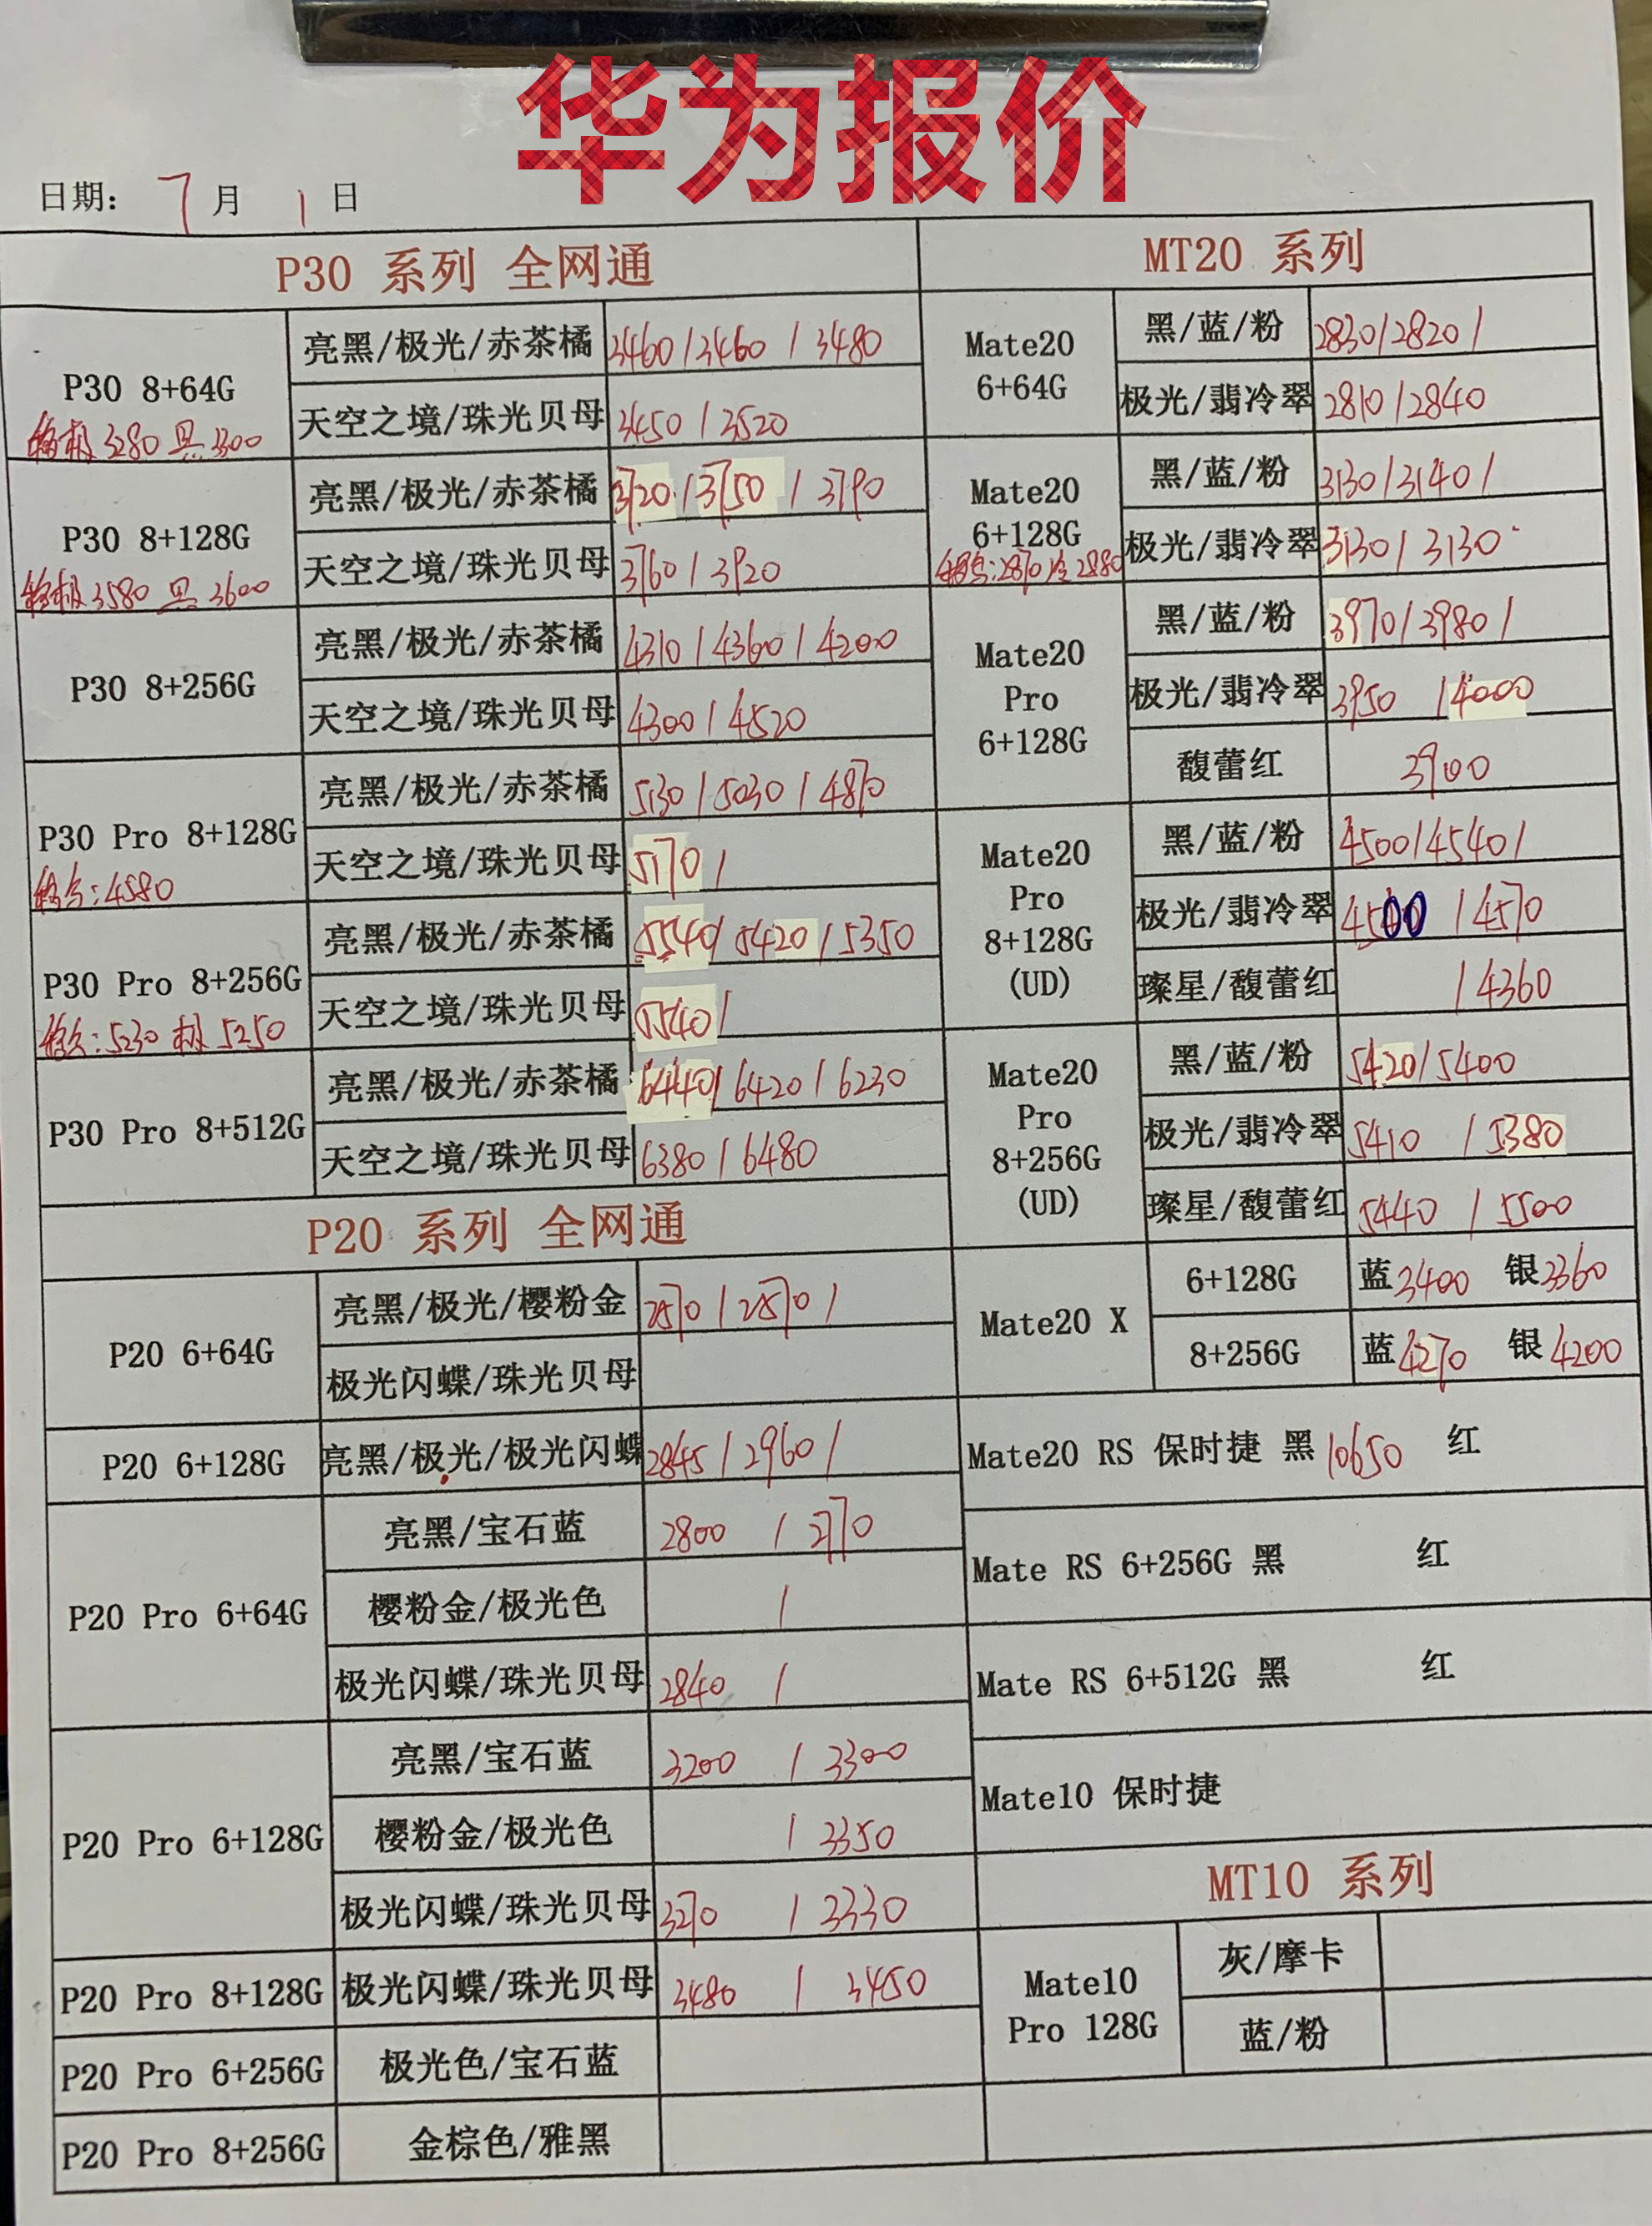 华为报价
日期: 7 月 1 日
P30 系列 全网通
P30 8+64G
移极3280 黑3300
亮黑/极光/赤茶橘 3460/3460/3480
天空之境/珠光贝母 3450/3520
P30 8+128G
移极3580 黑3600
亮黑/极光/赤茶橘 3720/3750/3790
天空之境/珠光贝母 3760/3920
P30 8+256G
亮黑/极光/赤茶橘 4310/4360/4200
天空之境/珠光贝母 4300/4520
P30 Pro 8+128G
:4580
亮黑/极光/赤茶橘 5130/5030/4870
天空之境/珠光贝母 5170/
P30 Pro 8+256G
:5230 极5250
亮黑/极光/赤茶橘 5540/5420/5350
天空之境/珠光贝母 5540/
P30 Pro 8+512G
亮黑/极光/赤茶橘 6440/6420/6230
天空之境/珠光贝母 6380/6480
P20 系列 全网通
P20 6+64G
亮黑/极光/樱粉金 2570/2570/
极光闪蝶/珠光贝母
P20 6+128G
亮黑/极光/极光闪蝶 2845/2960/
P20 Pro 6+64G
亮黑/宝石蓝 2800 / 2770
樱粉金/极光色 /
极光闪蝶/珠光贝母 2840 /
P20 Pro 6+128G
亮黑/宝石蓝 3200 / 3300
樱粉金/极光色 / 3350
极光闪蝶/珠光贝母 3270 / 3330
P20 Pro 8+128G
极光闪蝶/珠光贝母 3480 / 3450
P20 Pro 6+256G
极光色/宝石蓝
P20 Pro 8+256G
金棕色/雅黑
MT20 系列
Mate20
6+64G
黑/蓝/粉 2830/2820/
极光/翡冷翠 2810/2840
Mate20
6+128G
:2870 冷2880
黑/蓝/粉 3130/3140/
极光/翡冷翠 3130/3130
Mate20
Pro
6+128G
黑/蓝/粉 3970/3980/
极光/翡冷翠 3950 /4000
馥蕾红 3900
Mate20
Pro
8+128G
(UD)
黑/蓝/粉 4500/4540/
极光/翡冷翠 4500 /4570
璨星/馥蕾红 /4360
Mate20
Pro
8+256G
(UD)
黑/蓝/粉 5420/5400
极光/翡冷翠 5410 /5380
璨星/馥蕾红 5440 / 5500
Mate20 X
6+128G 蓝3400 银3360
8+256G 蓝4270 银4200
Mate20 RS 保时捷 黑 10650 红
Mate RS 6+256G 黑 红
Mate RS 6+512G 黑 红
Mate10 保时捷
MT10 系列
Mate10
Pro 128G
灰/摩卡
蓝/粉